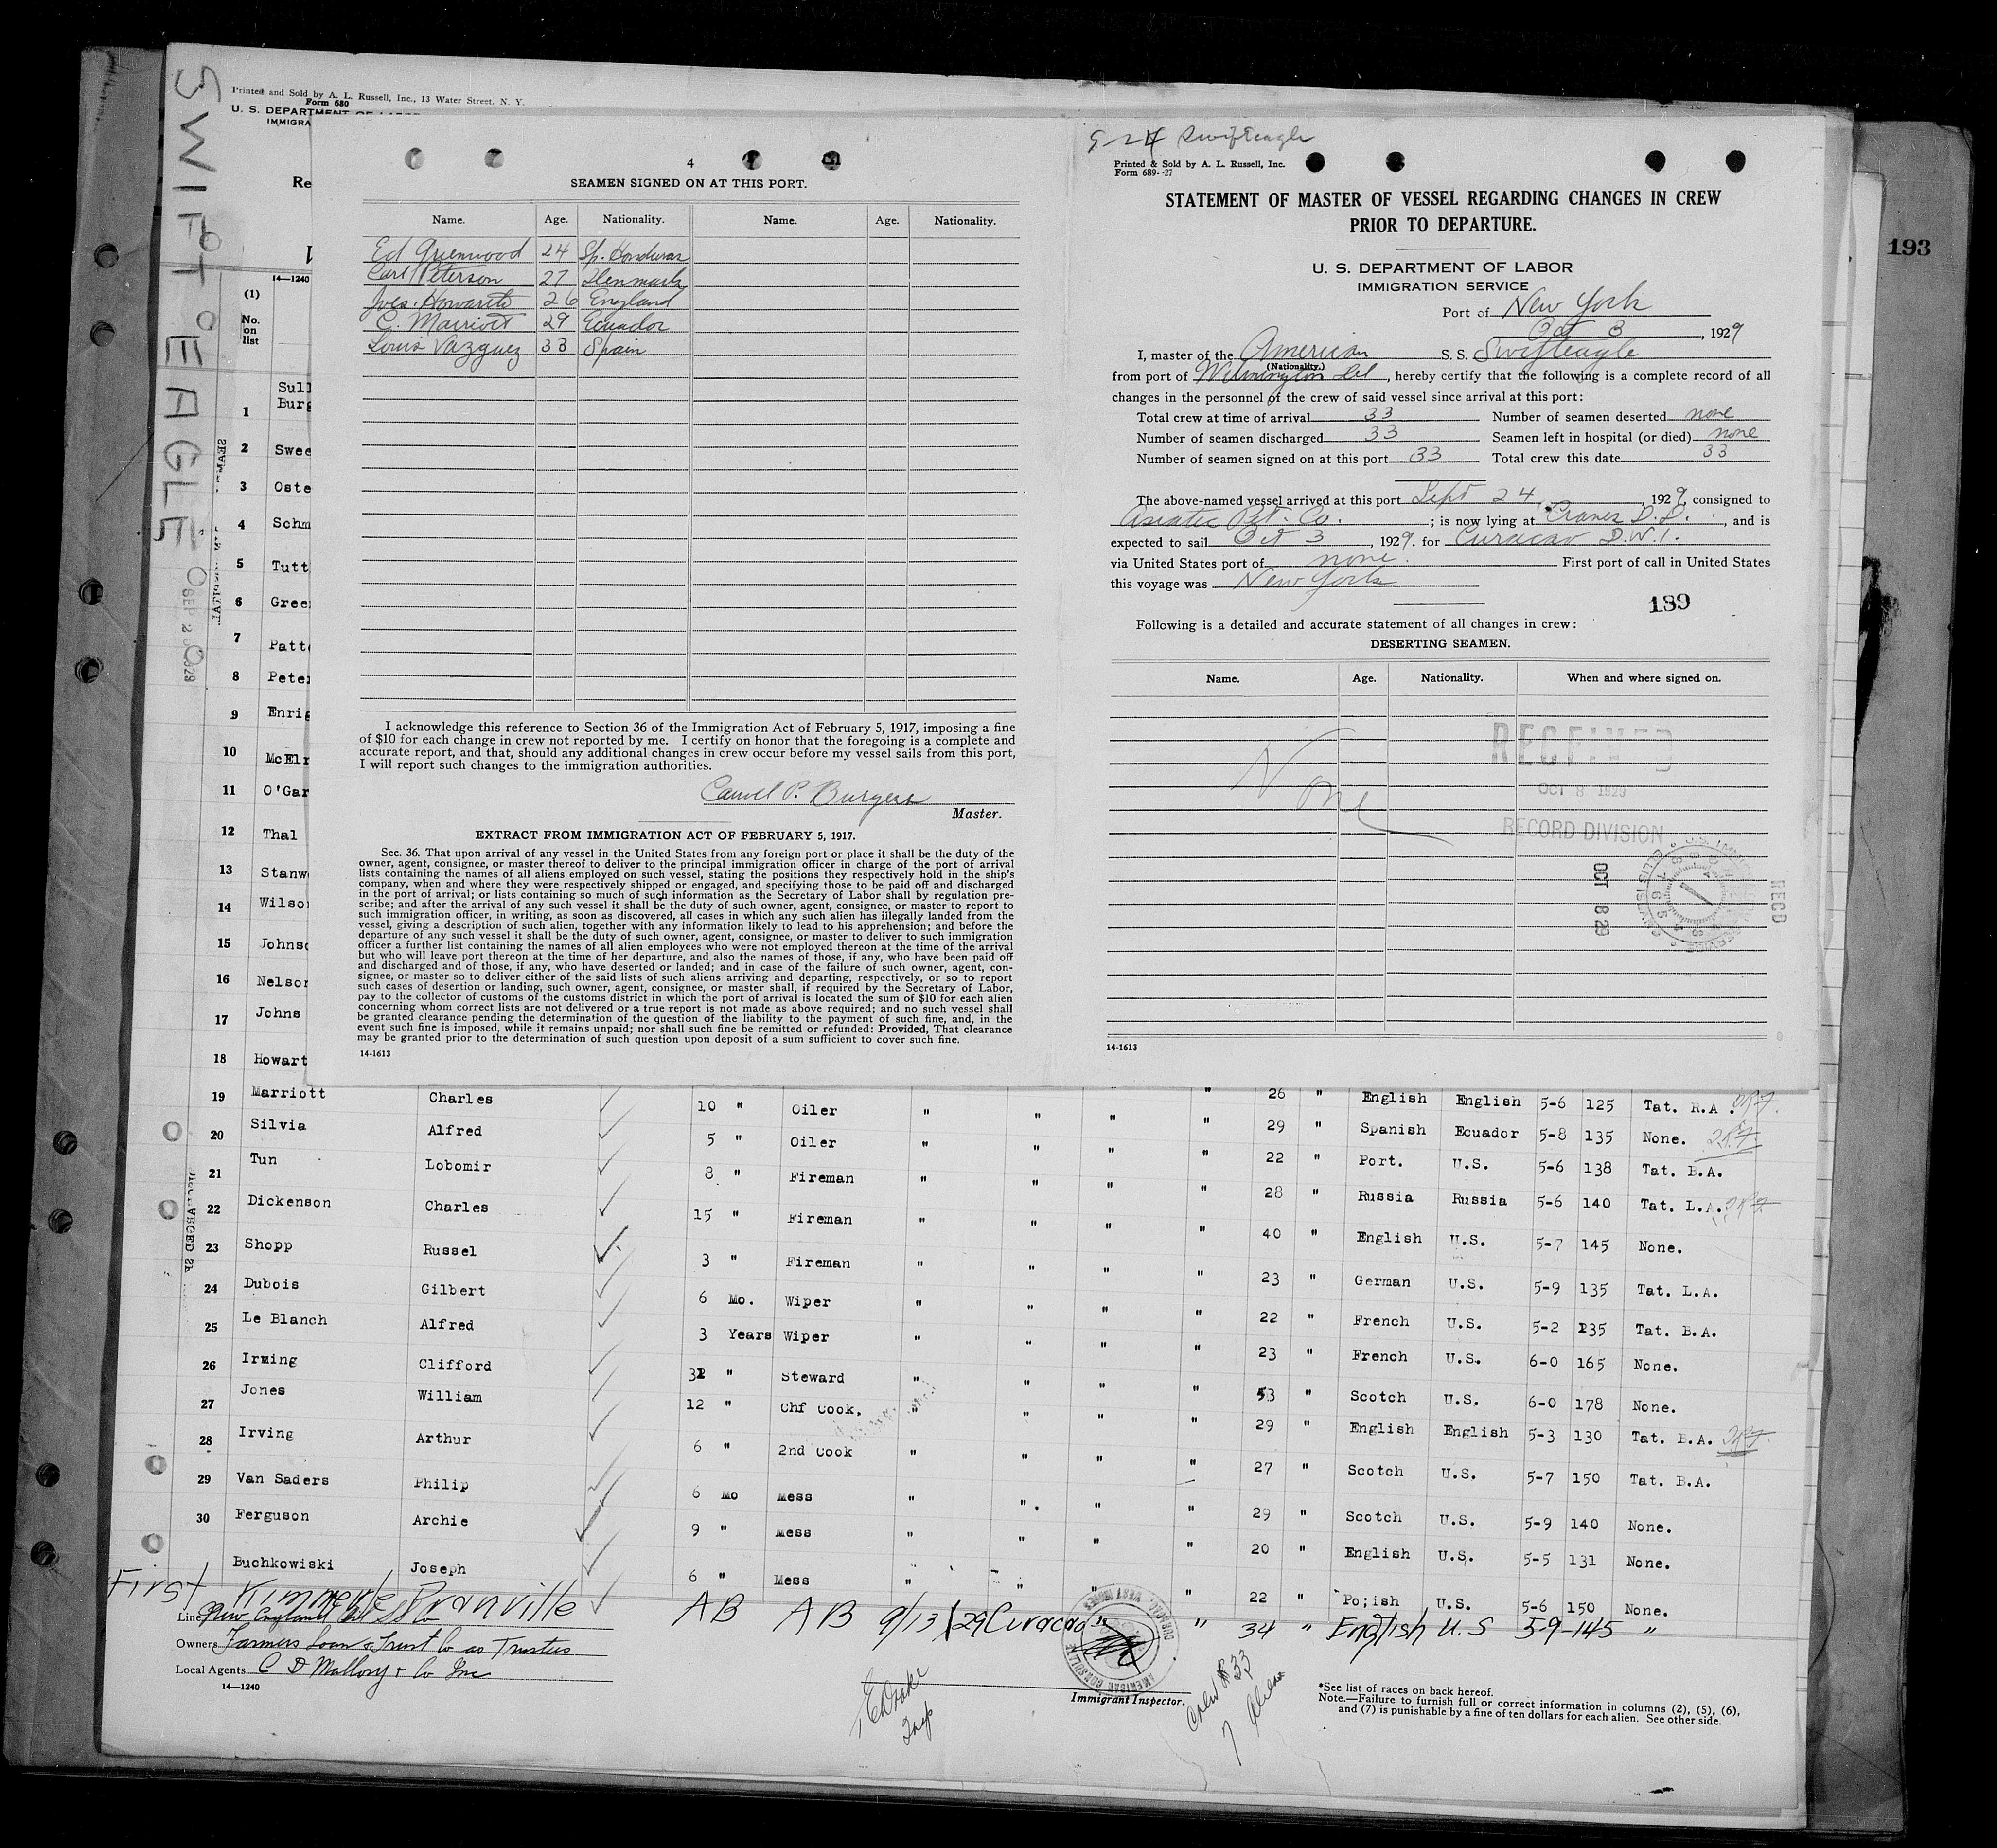 SWIFT EAGLE
SEP 2 1929
Printed and Sold by A. L. Russell, Inc., 13 Water Street, N. Y.
Form 680
U. S. DEPARTMENT OF LABOR
IMMIGRA
Re
14—1240
(1)
No.
on
list
Sull
1 Burg
2 Swee
3 Oste
4 Schm
5 Tutt
6 Gree
7 Patt
8 Peter
9 Enrig
10 McElr
11 O'Gar
12 Thal
13 Stanw
14 Wilso
15 Johnso
16 Nelson
17 Johns
18 Howart
4
SEAMEN SIGNED ON AT THIS PORT.
Name. Age. Nationality. Name. Age. Nationality.
Ed Greenwood 24 Sp. Honduras
Carl Peterson 27 Denmark
Jves. Howarth 26 England
C. Marriott 29 Ecuador
Louis Vazquez 33 Spain
I acknowledge this reference to Section 36 of the Immigration Act of February 5, 1917, imposing a fine
of $10 for each change in crew not reported by me. I certify on honor that the foregoing is a complete and
accurate report, and that, should any additional changes in crew occur before my vessel sails from this port,
I will report such changes to the immigration authorities.
P. Burgess
Master.
EXTRACT FROM IMMIGRATION ACT OF FEBRUARY 5, 1917.
Sec. 36. That upon arrival of any vessel in the United States from any foreign port or place it shall be the duty of the
owner, agent, consignee, or master thereof to deliver to the principal immigration officer in charge of the port of arrival
lists containing the names of all aliens employed on such vessel, stating the positions they respectively hold in the ship's
company, when and where they were respectively shipped or engaged, and specifying those to be paid off and discharged
in the port of arrival; or lists containing so much of such information as the Secretary of Labor shall by regulation pre-
scribe; and after the arrival of any such vessel it shall be the duty of such owner, agent, consignee, or master to report to
such immigration officer, in writing, as soon as discovered, all cases in which any such alien has illegally landed from the
vessel, giving a description of such alien, together with any information likely to lead to his apprehension; and before the
departure of any such vessel it shall be the duty of such owner, agent, consignee, or master to deliver to such immigration
officer a further list containing the names of all alien employees who were not employed thereon at the time of the arrival
but who will leave port thereon at the time of her departure, and also the names of those, if any, who have been paid off
and discharged and of those, if any, who have deserted or landed; and in case of the failure of such owner, agent, con-
signee, or master so to deliver either of the said lists of such aliens arriving and departing, respectively, or so to report
such cases of desertion or landing, such owner, agent, consignee, or master shall, if required by the Secretary of Labor,
pay to the collector of customs of the customs district in which the port of arrival is located the sum of $10 for each alien
concerning whom correct lists are not delivered or a true report is not made as above required; and no such vessel shall
be granted clearance pending the determination of the question of the liability to the payment of such fine, and, in the
event such fine is imposed, while it remains unpaid; nor shall such fine be remitted or refunded: Provided, That clearance
may be granted prior to the determination of such question upon deposit of a sum sufficient to cover such fine.
14-1613
9-24 Swifteagle
Printed & Sold by A. L. Russell, Inc.
Form 689--27
STATEMENT OF MASTER OF VESSEL REGARDING CHANGES IN CREW
PRIOR TO DEPARTURE.
U. S. DEPARTMENT OF LABOR
IMMIGRATION SERVICE
Port of New York
Oct 3, 1929
I, master of the American S. S. Swifteagle
(Nationality.)
from port of Wilmington Del, hereby certify that the following is a complete record of all
changes in the personnel of the crew of said vessel since arrival at this port:
Total crew at time of arrival 33 Number of seamen deserted none
Number of seamen discharged 33 Seamen left in hospital (or died) none
Number of seamen signed on at this port 33 Total crew this date 33
The above-named vessel arrived at this port Sept 24, 1929, consigned to
Asiatic Pet. Co. ; is now lying at Cranes D.D. , and is
expected to sail Oct 3, 1929. for Curacao D.W.I.
via United States port of none. First port of call in United States
this voyage was New York
189
Following is a detailed and accurate statement of all changes in crew:
DESERTING SEAMEN.
Name. Age. Nationality. When and where signed on.
None
RECEIVED
OCT 8 1929
RECORD DIVISION
OCT 8 29
REC'D
14-1613
193
19 Marriott Charles 10 " Oiler " " " " 26 " English English 5-6 125 Tat. R.A.
20 Silvia Alfred 5 " Oiler " " " " 29 " Spanish Ecuador 5-8 135 None.
21 Tun Lobomir 8 " Fireman " " " " 22 " Port. U.S. 5-6 138 Tat. B.A.
22 Dickenson Charles 15 " Fireman " " " " 28 " Russia Russia 5-6 140 Tat. L.A.
23 Shopp Russel 3 " Fireman " " " " 40 " English U.S. 5-7 145 None.
24 Dubois Gilbert 6 Mo. Wiper " " " " 23 " German U.S. 5-9 135 Tat. L.A.
25 Le Blanch Alfred 3 Years Wiper " " " " 22 " French U.S. 5-2 135 Tat. B.A.
26 Irming Clifford 32 " Steward " " " " 23 " French U.S. 6-0 165 None.
27 Jones William 12 " Chf Cook. " " " " 53 " Scotch U.S. 6-0 178 None.
28 Irving Arthur 6 " 2nd Cook " " " " 29 " English English 5-3 130 Tat. B.A.
29 Van Saders Philip 6 Mo Mess " " " " 27 " Scotch U.S. 5-7 150 Tat. B.A.
30 Ferguson Archie 9 " Mess " " " " 29 " Scotch U.S. 5-9 140 None.
Buchkowiski Joseph 6 " Mess " " " " 20 " English U.S. 5-5 131 None.
22 " Po;ish U.S. 5-6 150 None.
First Kimmerle Granville AB AB 9/13/29 Curacao " " 34 " English U.S 5-9-145 "
Line New England S S Co
Owners Farmers Loan & Trust Co as Trustees
Local Agents C D Mallory & Co Inc
14—1240
Immigrant Inspector.
Crew 33
7 Aliens
*See list of races on back hereof.
Note.—Failure to furnish full or correct information in columns (2), (5), (6),
and (7) is punishable by a fine of ten dollars for each alien. See other side.